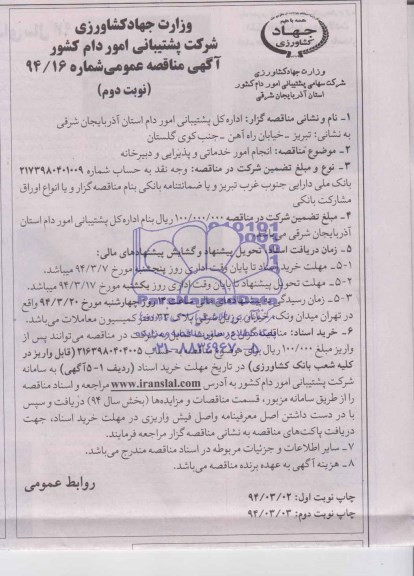 وزارت جهادکشاورزی
شرکت پشتیبانی امور دام کشور
آگهی مناقصه عمومی شماره ۹۴/۱۶
(نوبت دوم)
همه با هم
جهاد
کشاورزی
وزارت جهادکشاورزی
شرکت سهامی پشتیبانی امور دام کشور
استان آذربایجان شرقی
۱- نام و نشانی مناقصه گزار: اداره کل پشتیبانی امور دام استان آذربایجان شرقی
به نشانی: تبریز -خیابان راه آهن -جنب کوی گلستان
۲- موضوع مناقصه: انجام امور خدماتی و پذیرایی و دبیرخانه
۳- نوع و مبلغ تضمین شرکت در مناقصه: وجه نقد به حساب شماره ۲۱۷۳۹۸۰۴۰۱۰۰۹
بانک ملی دارایی جنوب غرب تبریز و یا ضمانتنامه بانکی بنام مناقصه گزار و یا انواع اوراق
مشارکت بانکی
۴- مبلغ تضمین شرکت در مناقصه ۱۰۰/۰۰۰/۰۰۰ ریال بنام اداره کل پشتیبانی امور دام استان
آذربایجان شرقی می‌باشد.
۵- زمان دریافت اسناد، تحویل پیشنهاد و گشایش پیشنهادهای مالی:
۵-۱- مهلت خرید اسناد تا پایان وقت اداری روز پنجشنبه مورخ ۹۴/۳/۷ میباشد.
۵-۲- مهلت تحویل پیشنهاد تا پایان وقت اداری روز یکشنبه مورخ ۹۴/۳/۱۷ میباشد.
۵-۳- زمان رسیدگی به پیشنهادهای چهارشنبه مورخ ۹۴/۳/۲۰ واقع
در تهران میدان ونک، پلاک کمیسیون معاملات می‌باشد.
۶- خرید اسناد: شرکت در مناقصه می‌توانند پس از
واریز مبلغ ۱۰۰/۰۰۰ ریال برای ۲۱۶۳۹۸۰۴۰۴۰۰۵ (قابل واریز در
کلیه شعب بانک کشاورزی) در تاریخ مهلت خرید اسناد (ردیف ۱-۵آگهی) به سامانه
شرکت پشتیبانی امور دام کشور به آدرس www.iranslal.com مراجعه و اسناد مناقصه
را از طریق سامانه مزبور، قسمت مناقصات و مزایده‌ها (بخش سال ۹۴) دریافت و سپس
با در دست داشتن اصل معرفینامه واصل فیش واریزی در مهلت خرید اسناد، جهت
دریافت پاکت‌های مناقصه به نشانی مناقصه گزار مراجعه فرمایند.
۷- سایر اطلاعات و جزئیات مربوطه در اسناد مناقصه مندرج می‌باشد.
۸- هزینه آگهی به عهده برنده مناقصه می‌باشد.
روابط عمومی
چاپ نوبت اول: ۹۴/۰۳/۰۲
چاپ نوبت دوم: ۹۴/۰۳/۰۳
۰۲۱-۸۸۳۴۹۶۷۰-۵